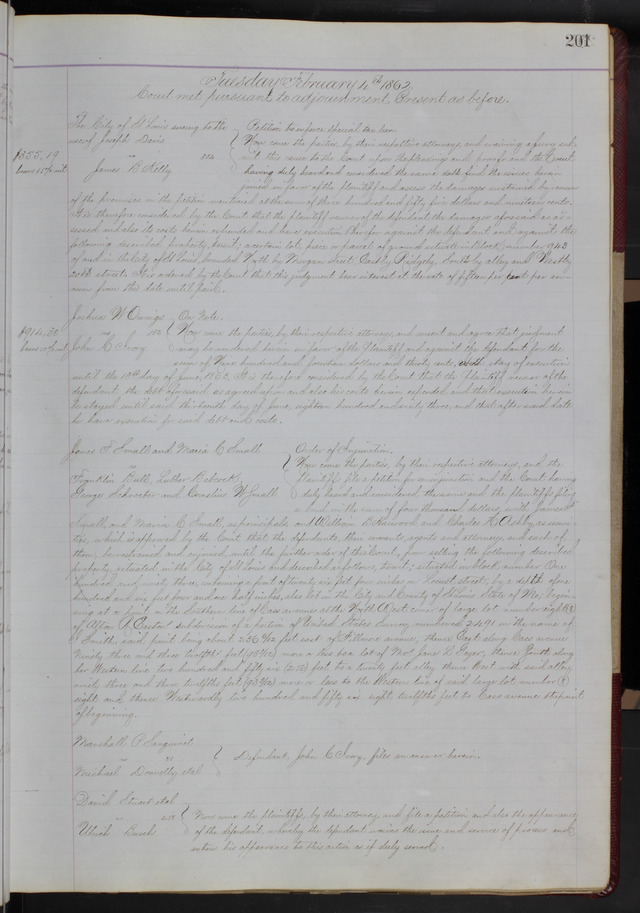 201
Tuesday February 4th 1862
Court met pursuant to adjournment, Present as before.
The City of St Louis suing to the
use of Joseph Davis
vs
James B Kelly
$355.19
bears 15 % int
Petition to enforce special tax lien
Now come the parties, by their respective attorneys, and waiving a jury sub-
mit this cause to the Court upon the pleadings and proofs and the Court
having duly heard and considered the same doth find the issues herein
joined in favor of the plaintiff and assess the damages sustained by reason
of the premises in the petition mentioned at the sum of three hundred and fifty five dollars and nineteen cents.
It is therefore considered by the Court that the plaintiff recover of the defendant the damages aforesaid as as-
sessed and also its costs herein expended and have execution therefor against the defendant and against the
following described property, towit; a certain lot, piece or parcel of ground situate in Block number 943
of and in the City of St Louis, bounded North by Morgan street, East by Ridgely, South by alley and West by
20th street. It is ordered by the Court that this judgment bear interest at the rate of fifteen per cent per an-
num from this date until paid.
Joshua W Owings
vs
John C Ivory
$914.30
bears 10 % int
On Note.
Now come the parties, by their respective attorneys, and consent and agree that judgment
may be rendered herein in favor of the Plaintiff and against the defendant for the
sum of Nine hundred and fourteen dollars and thirty cents, with stay of execution
until the day of June, 1862. It is therefore considered by the Court that the Plaintiff recover of the
defendant the debt aforesaid as agreed upon and also his costs herein expended and that execution herein
be stayed until said thirteenth day of June, eighteen hundred and sixty three, and that after said date
he have execution for such debt and costs.
James F Small and Maria C Small
vs
Franklin Bull, Luther Babcock,
George Schroeter and Cornelius W Small
Order of Injunction.
Now come the parties, by their respective attorneys, and the
plaintiffs file a petition for an injunction and the Court having
duly heard and considered the same and the plaintiffs filing
a bond in the sum of four thousand dollars, with James F
Small and Maria C Small, as principals, and William B and Charles H Ashby, as securi-
ties, which is approved by the Court that the defendants, their servants, agents and attorneys, and each of
them, be restrained and enjoined, until the further order of this Court, from selling the following described
property, situated in the City of St Louis and described as follows, towit; situated in block number One
hundred and ninety three, containing a front of twenty six feet four inches on Locust street, by a depth of one
hundred and six feet four and one half inches, also lot in the City and County of St Louis State of Mo; begin-
ning at a point in the Southern line of Cass avenue at the North East corner of large lot number eight (8)
of Alton R Easton's subdivision of a portion of United States Survey, numbered 2491 in the name of
Smith, said point being about 236 9/12 feet west of avenue, thence East along Cass avenue
Ninety three and three twelfths feet (93 3/12) more or less to a lot of Mrs Jane R Geyer, thence South along
her Western line two hundred and fifty six (256) feet to a twenty feet alley, thence West with said alley
ninety three and three twelfths feet (93 3/12) more or less to the Western line of said large lot number (8)
eight and thence Westwardly two hundred and fifty six eight twelfths feet to Cass avenue the point
of beginning.
Marshall P Sanguinet
vs
Michael Donnelly et al
Defendant, John C Ivory, files an answer herein.
David Stuart et al
vs
Ulrich Busch
Now come the plaintiffs, by their attorney, and file a petition and also the appearance
of the defendant, whereby the defendant waives the issue and service of process and
enters his appearance to this action as if duly served.